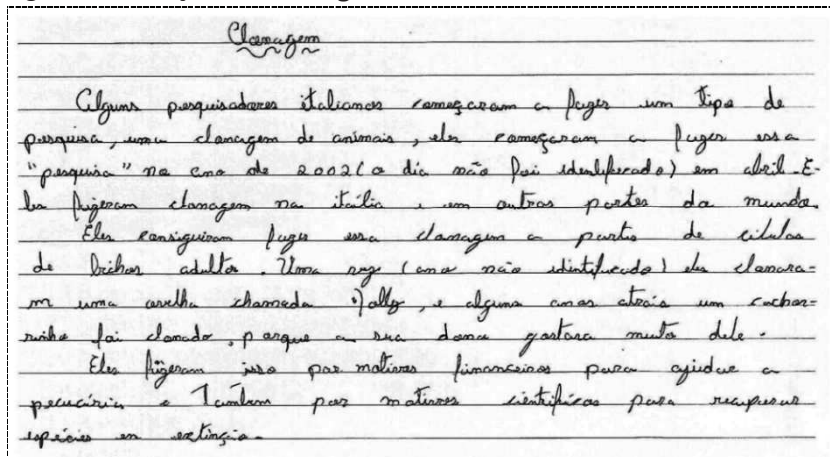 Clonagem
Alguns pesquisadores italianos começaram a fazer um tipo de
pesquisa, uma clonagem de animais, eles começaram a fazer essa
"pesquisa" no ano de 2002 (o dia não foi identificado) em abril. E-
les fizeram clonagem na itália e em outras partes do mundo.
Eles consiguiram fazer essa clonagem a partir de células
de bichos adultos. Uma vez (ano não identificado) eles clonara-
m uma ovelha chamada Dolly, e alguns anos atrais um cachor-
rinho foi clonado, porque a sua dona gostara muito dele.
Eles fizeram isso por motivos financeiros para ajudar a
pecuária e Tambem por motivos cientificos para recuperar
espécies em extinção.